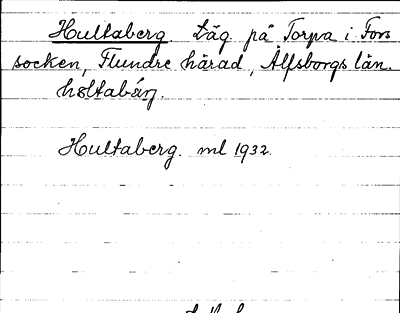 Hultaberg. Läg. på Torpa i Fors
socken, Flundre härad, Älfsborgs län.
hѳltabárj.
Hultaberg. ml 1932.